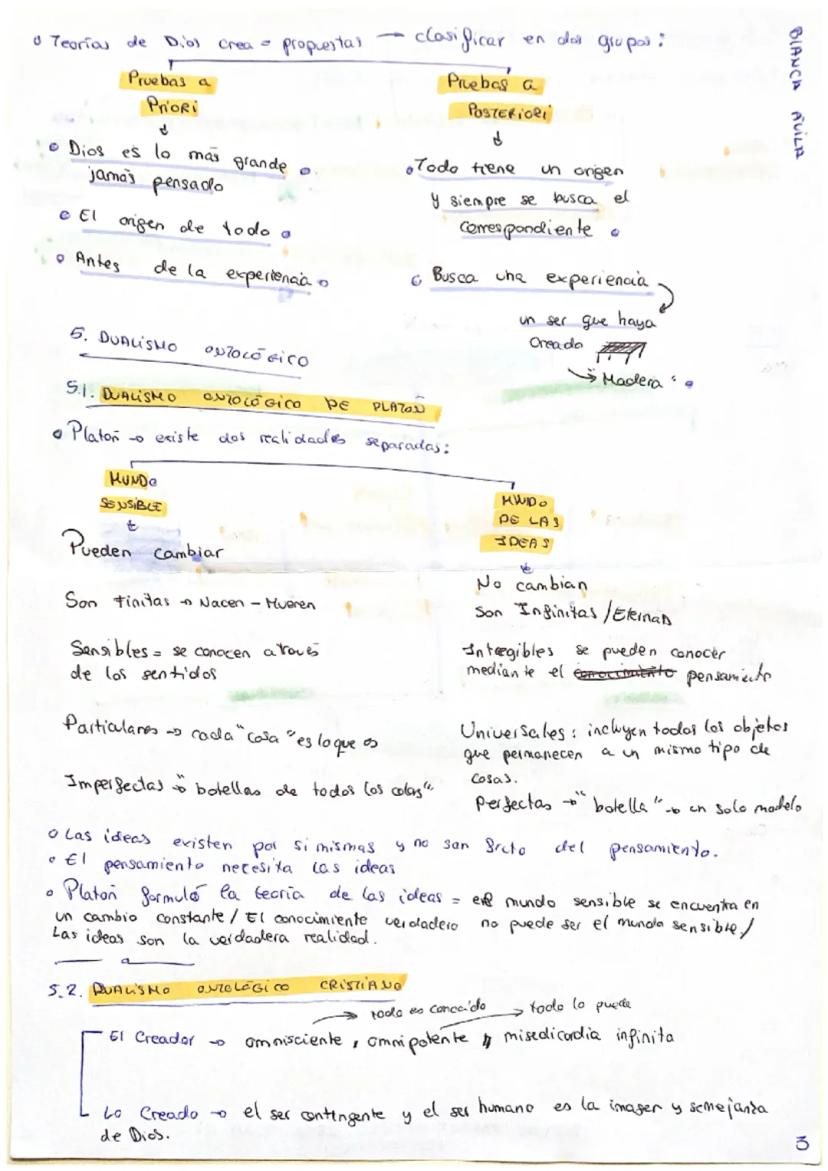 o Teorías de Dios crea = propuestas → clasificar en dos grupos:
BIANCA AVILA
Pruebas a
PRIORI
• Dios es lo más grande
jamás pensado
• El origen de todo
• Antes de la experiencia
Pruebas a
POSTERIORI
• Todo tiene un origen
y siempre se busca el
correspondiente
• Busca una experiencia
un ser que haya
creado
→ Madera "
5. DUALISMO ONTOLÓGICO
5.1. DUALISMO ONTOLÓGICO DE PLATÓN
• Platón → existe dos realidades separadas:
MUNDO
SENSIBLE
Pueden cambiar
Son finitas → Nacen - Mueren
Sensibles = se conocen através
de los sentidos
Particulares → cada "cosa" es lo que es
Imperfectas → "botellas de todos los colas"
MUNDO
DE LAS
IDEAS
No cambian
Son Infinitas / Eternas
Intregibles se pueden conocer
mediante el conocimiento pensamiento
Universales: incluyen todos los objetos
que permanecen a un mismo tipo de
cosas.
Perfectas → "botella" → un solo modelo
o Las ideas existen por si mismas y no son fruto del pensamiento.
• El pensamiento necesita las ideas
• Platón formuló la teoría de las ideas = el mundo sensible se encuentra en
un cambio constante / El conocimiento verdadero no puede ser el mundo sensible /
Las ideas son la verdadera realidad.
5.2. DUALISMO ONTOLÓGICO CRISTIANO
→ todo es conocido → todo lo puede
El Creador → omnisciente, omnipotente y misedicordia infinita
Lo Creado → el ser contingente y el ser humano es la imagen y semejanza
de Dios.
3